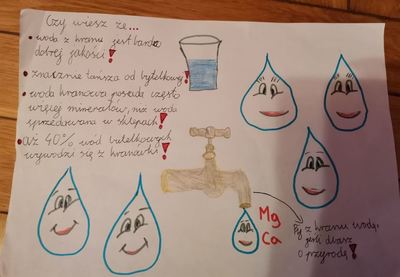 Czy wiesz że...
• woda z kranu jest bardzo
dobrej jakości!
• znacznie tańsza od butelkowej!
• woda kranowa posiada często
więcej minerałów, niż woda
sprzedawana w sklepach!
• aż 40% wód butelkowych
wywodzi się z kranówki!
Mg
Ca
Pij z kranu wodę,
jeśli dbasz
o przyrodę!